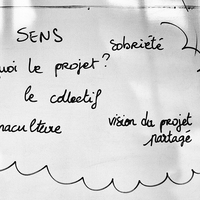 SENS
sobriété
uoi le projet ?
le collectif
maculture
vision du projet
partagé